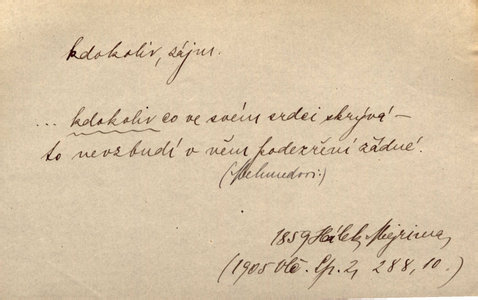 kdokoliv, zájm.
... kdokoliv co ve svém srdci skrývá –
to nevzbudí v něm podezření žádné.
(Mehmedovi:)
1859 Hálek, Mejrima,
(1905 Ott. Sp. 2, 288, 10.)